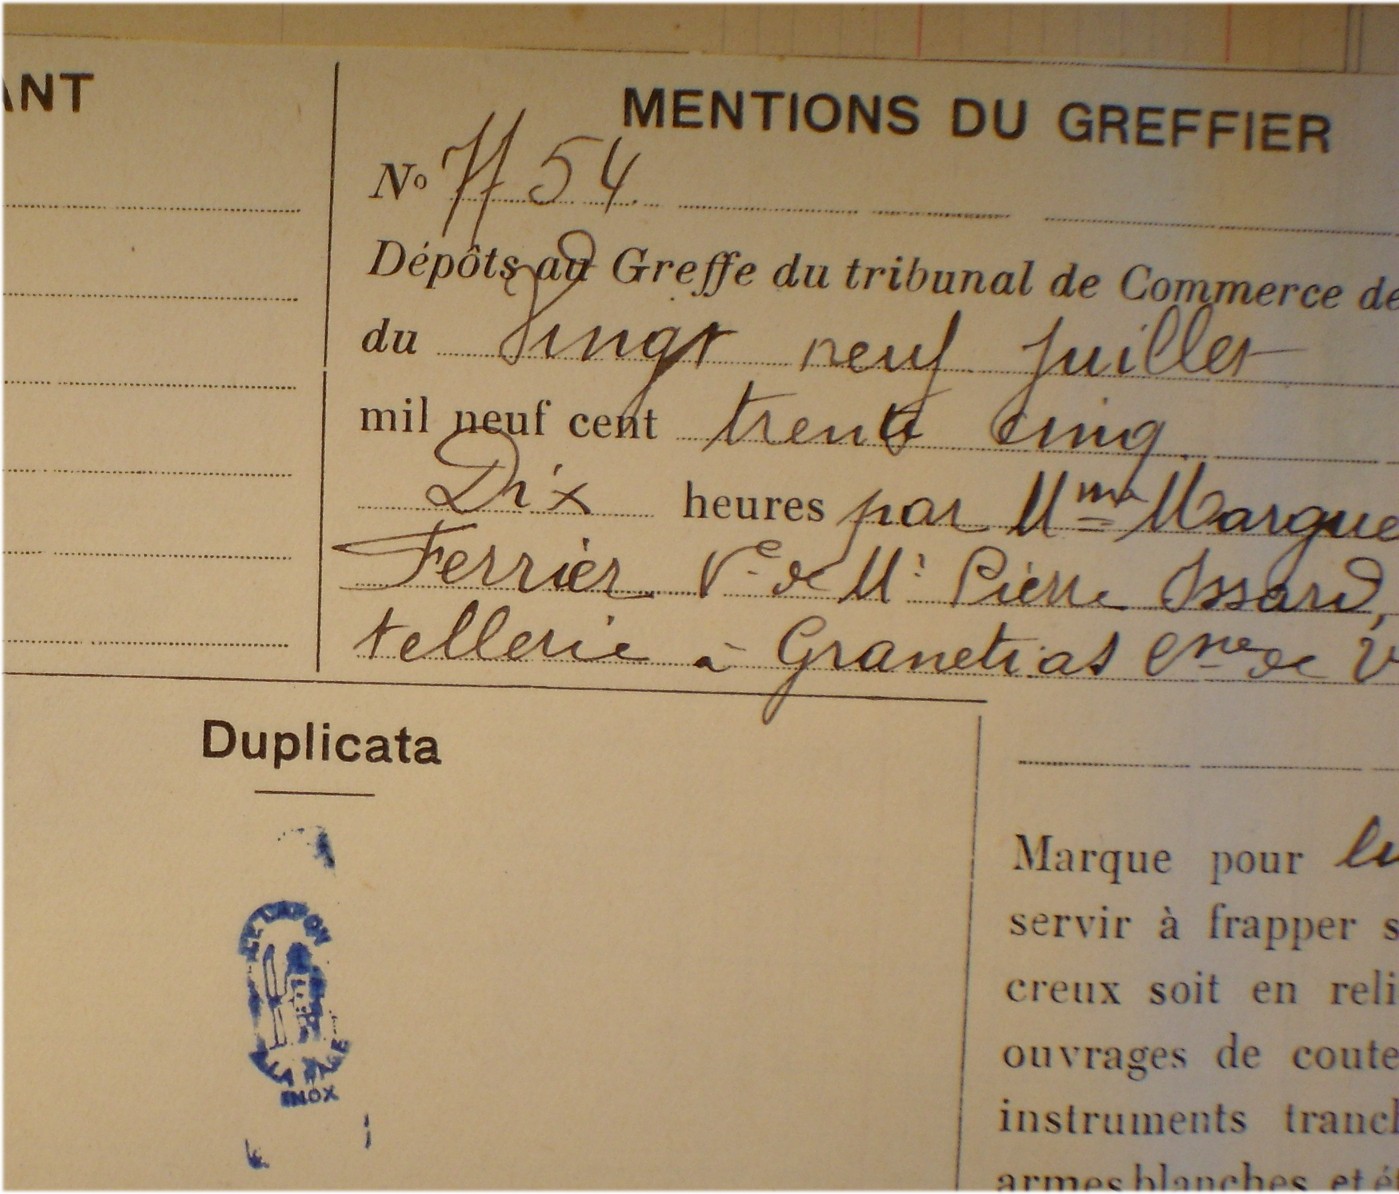 ANT
MENTIONS DU GREFFIER
No 7754
Dépôts au Greffe du tribunal de Commerce de
du Vingt neuf Juillet
mil neuf cent trente cinq
Dix heures par Mme Margue
Ferrier Ve de Mr Pierre Issard,
tellerie à Granetias Cne de V
Duplicata
LE LAPON
INOX
Marque pour
servir à frapper s
creux soit en reli
ouvrages de coute
instruments trancl
armes blanches et é